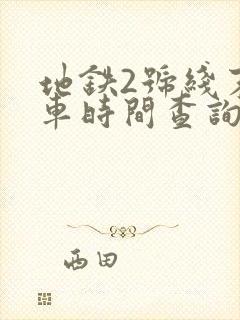 地鉄2號綫
車時間查詢
西田